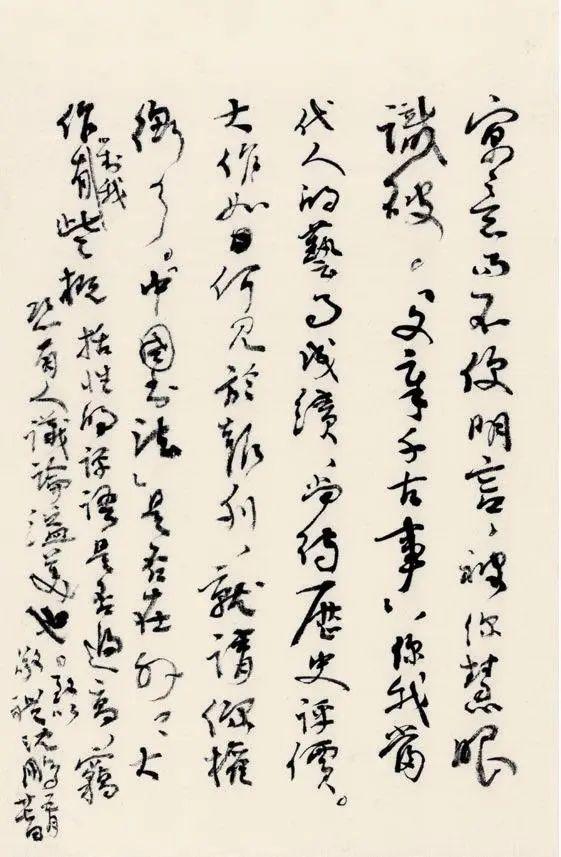 寓意而不便明言、被你慧眼
識破。「文章千古事」、你我當
代人的藝事成績、尚待歷史評價。
大作如何見於報刊、就請你權
衡了。「中國書法」是否在外？大
作對我有些概括性的評語是否過高、竊
恐有人議論溢美也。致以
敬禮 沈鵬